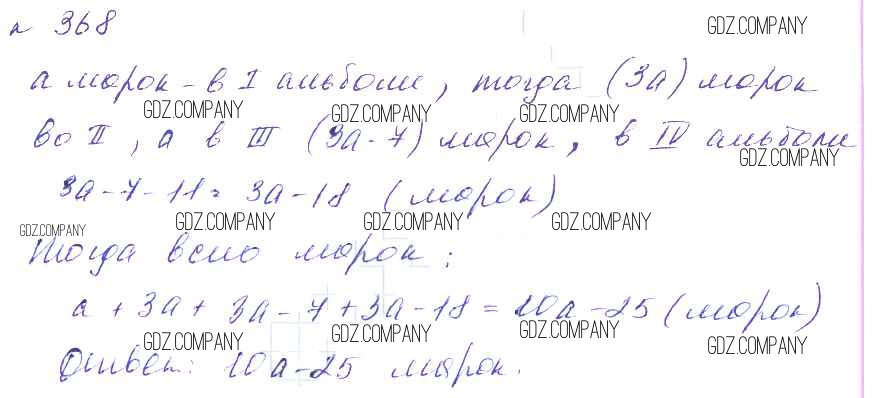 № 368 GDZ.COMPANY
а марок - в I альбоме, тогда (3а) марок
GDZ.COMPANY GDZ.COMPANY GDZ.COMPANY
во II, а в III (3а-7) марок, в IV альбоме
GDZ.COMPANY
3а-7-11= 3а-18 (марок)
GDZ.COMPANY GDZ.COMPANY GDZ.COMPANY GDZ.COMPANY
Тогда всего марок:
а + 3а + 3а - 7 + 3а - 18 = 10а - 25 (марок)
GDZ.COMPANY GDZ.COMPANY GDZ.COMPANY GDZ.COMPANY
Ответ: 10а-25 марок.